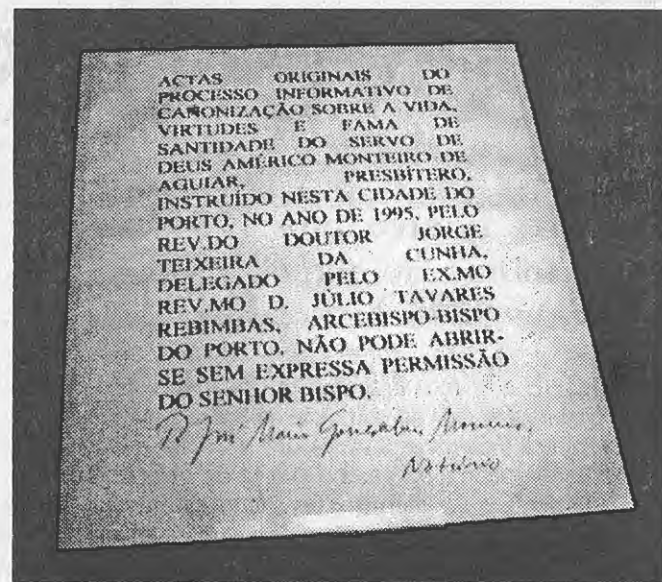 ACTAS ORIGINAIS DO
PROCESSO INFORMATIVO DE
CANONIZAÇÃO SOBRE A VIDA,
VIRTUDES E FAMA DE
SANTIDADE DO SERVO DE
DEUS AMÉRICO MONTEIRO DE
AGUIAR, PRESBÍTERO,
INSTRUÍDO NESTA CIDADE DO
PORTO, NO ANO DE 1995, PELO
REV.DO DOUTOR JORGE
TEIXEIRA DA CUNHA,
DELEGADO PELO EX.MO
REV.MO D. JÚLIO TAVARES
REBIMBAS, ARCEBISPO-BISPO
DO PORTO. NÃO PODE ABRIR-
SE SEM EXPRESSA PERMISSÃO
DO SENHOR BISPO.
P. José Maria Gonçalves
Notário